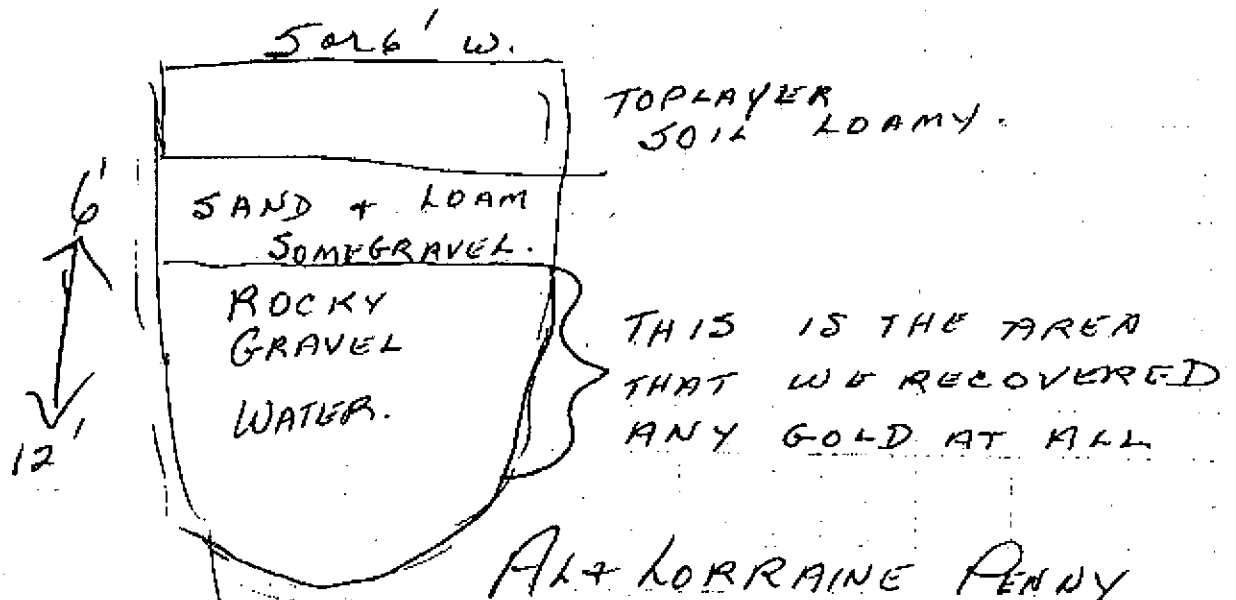 5 or 6' W.
TOPLAYER
SOIL LOAMY.
6'
SAND + LOAM
SOMEGRAVEL.
ROCKY
GRAVEL
WATER.
12'
THIS IS THE AREA
THAT WE RECOVERED
ANY GOLD AT ALL
AL + LORRAINE PENNY